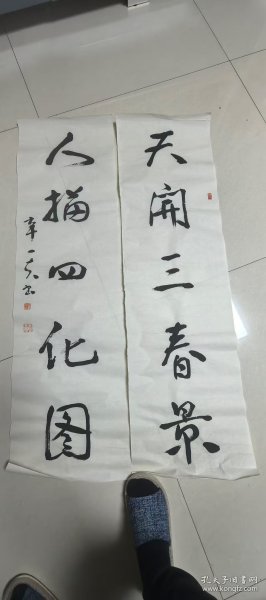 天開三春景
人描四化图
辛一夫书
孔夫子旧书网
www.kongfz.com